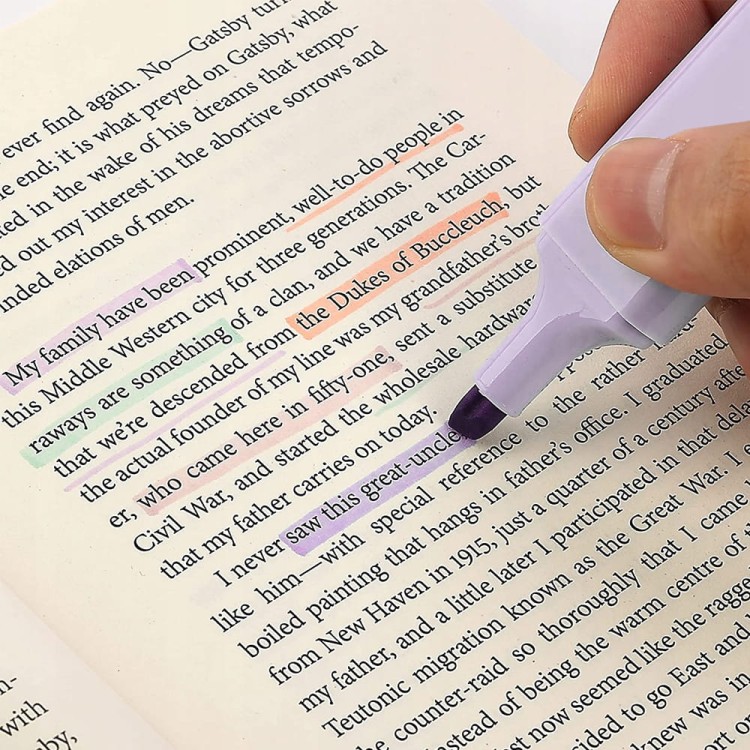 ever find again. No—Gatsby turn
e end; it is what preyed on Gatsby, what
ted in the wake of his dreams that tempo-
d out my interest in the abortive sorrows and
nded elations of men.
My family have been prominent, well-to-do people in
this Middle Western city for three generations. The Car-
raways are something of a clan, and we have a tradition
that we're descended from the Dukes of Buccleuch, but
the actual founder of my line was my grandfather's brot
er, who came here in fifty-one, sent a substitute
Civil War, and started the wholesale hardwar
that my father carries on today.
I never saw this great-uncle
like him—with special reference to the rather
boiled painting that hangs in father's office. I graduated
from New Haven in 1915, just a quarter of a century afte
my father, and a little later I participated in that dela
Teutonic migration known as the Great War. I e
he counter-raid so thoroughly that I came
nstead of being the warm centre of t
st now seemed like the ragg
ided to go East and
knew was in
n-
with
by,